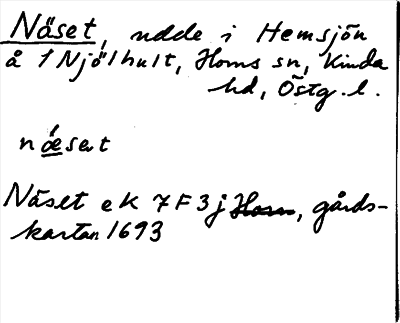 Näset, udde i Hemsjön
å 1 Njölhult, Horns sn, Kinda
hd, Östg. l.
næ̀set
Näset ek 7F3j Horn, gårds-
kartan 1693